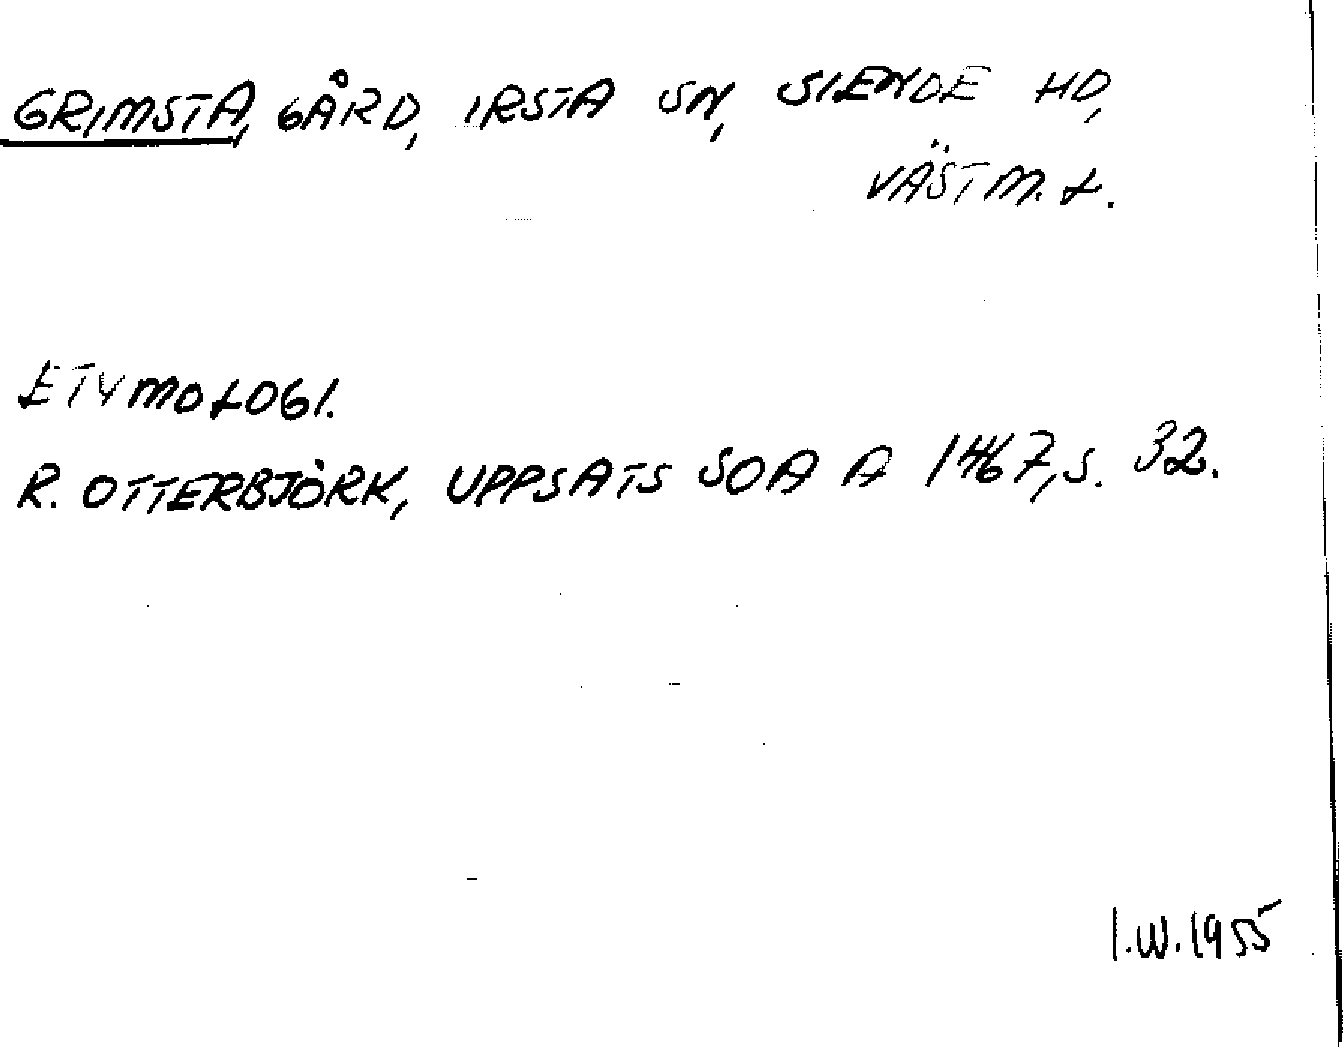 GRIMSTA, GÅRD, IRSTA SN, SIENDE HD,
VÄSTM. L.
ETYMOLOGI.
R. OTTERBJÖRK, UPPSATS SOA A 1467, S. 32.
I.W. 1955